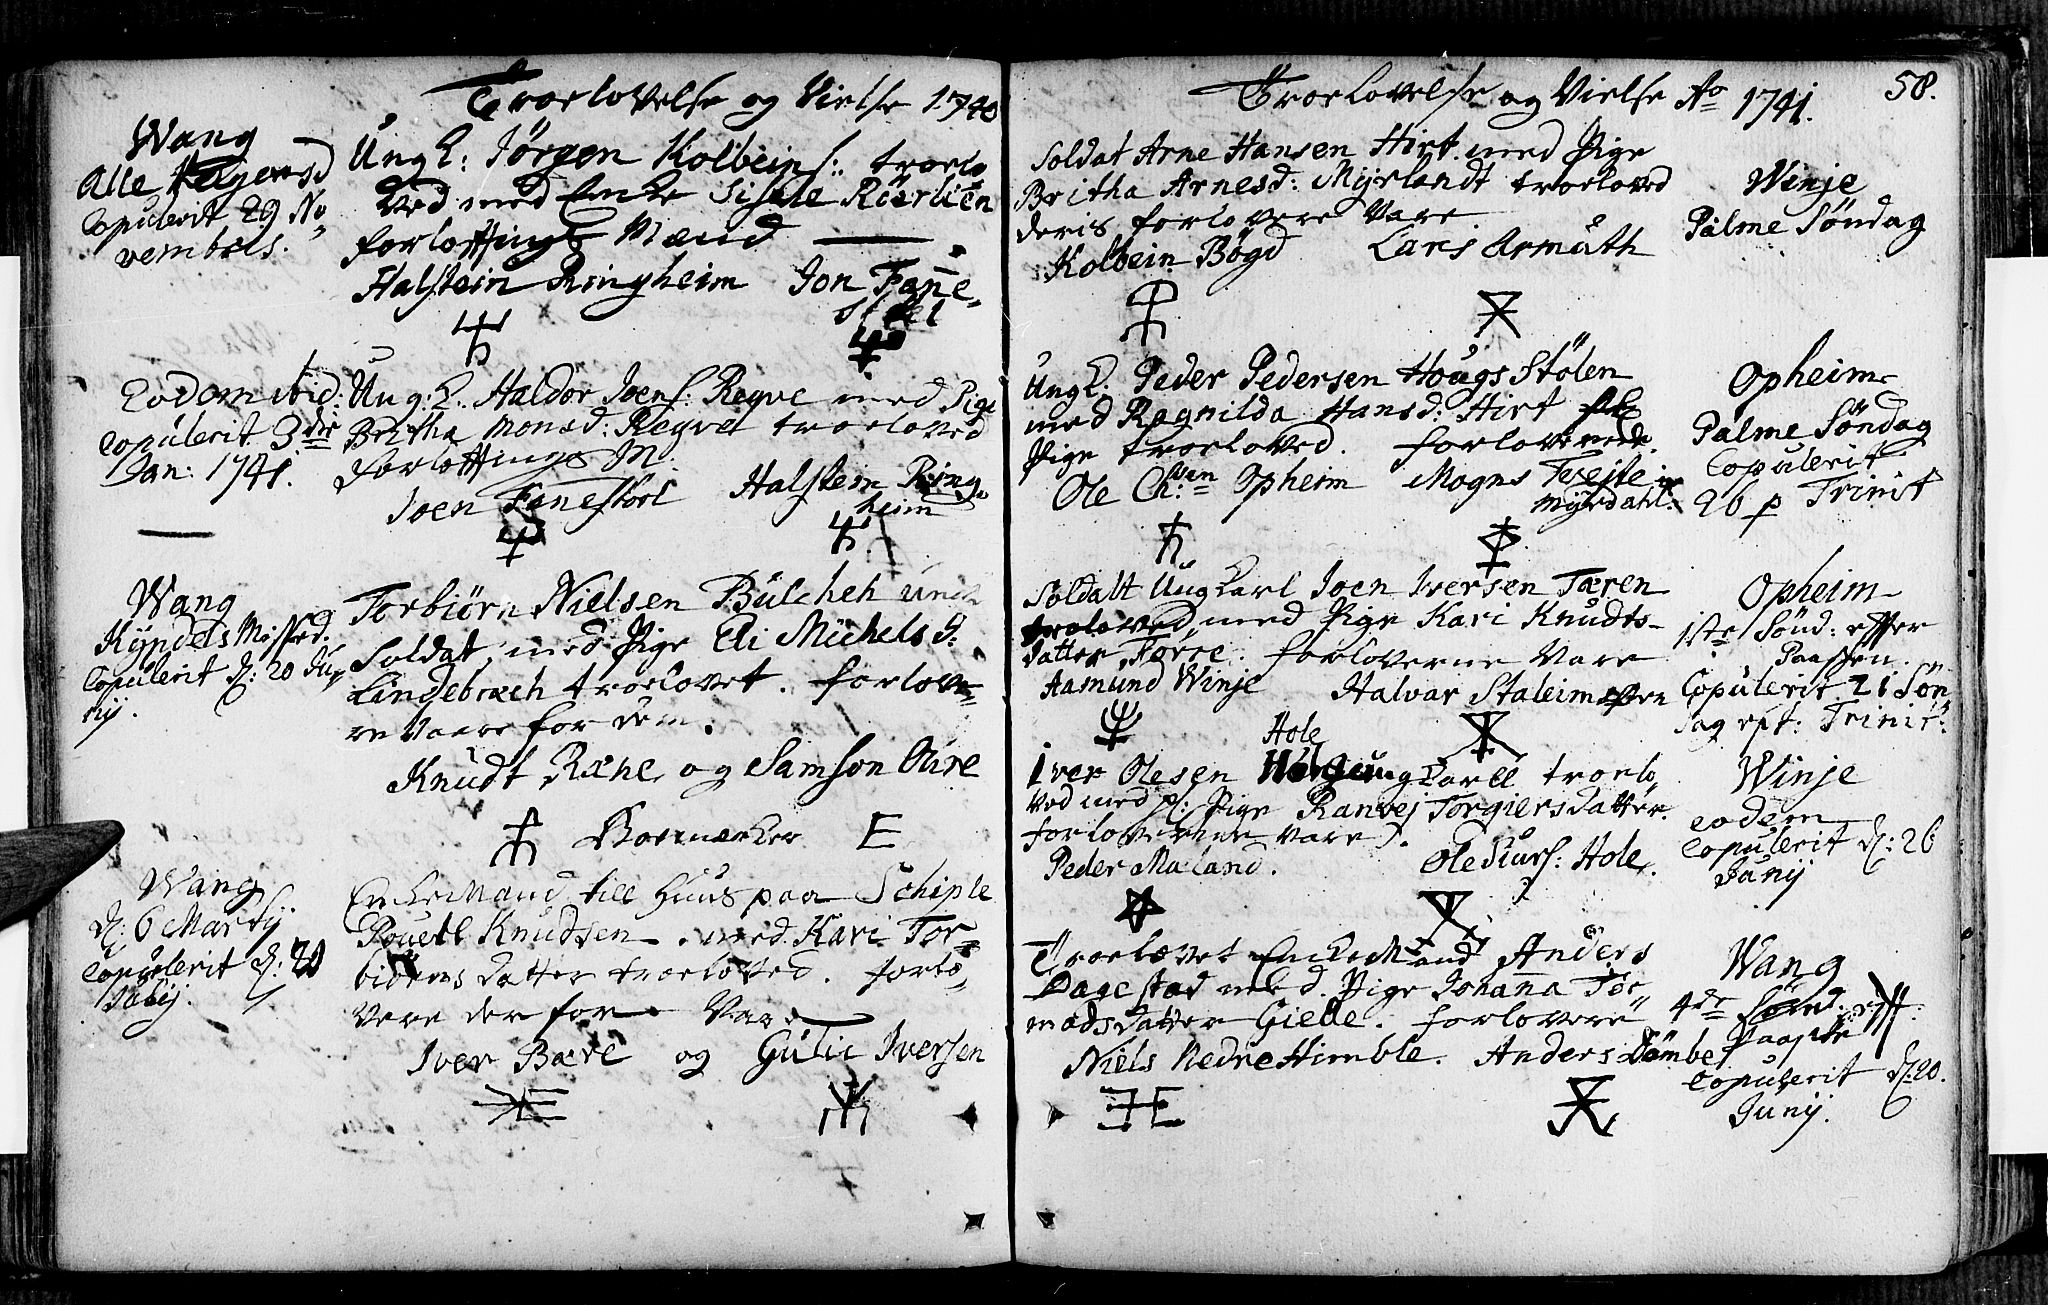 Troelovelse og Vielse 1740
Wang
Alle Helgensd
Copulerit 29 No
vembris.
Ungk: Jörgen Kolbeins: troelo
ved med Enke Sisele Röerlien
forloftings Mænd
Halstein Ringheim Jon Fane
stöel
Eodem ibid:
Copulerit 3die
Jan: 1741.
Ung:k: Haldor Joens: Reqve med Pige
Britha Monsd: Reqve troeloved
forloftings M.
Joen Fanestöel Halstein Ring
heim
Wang
Kyndelsmissed.
Copulerit d: 20 Ju
nij.
Torbiörn Nielsen Bulcheh
Soldat med Pige Eli Michels D:
Lindebræch troelovet. forlove
re Vaare for dem.
Knudt Ræne og Samson Öure
Boemærker E
Wang
d: 6 Martij
Copulerit d: 20
Julij.
Enkemand till Huus paa Schiple
Pouell Knudsen med Kari Tor
biörns datter troeloved. forlo
vere der for Var
Iver Bære og Gulic Iversen
Troelovelse og Vielse Ao 1741. 58.
Soldat Arne Hansen Hirt med Pige
Britha Arnesd: Myrlandt troeloved
deris forlovere Vare
Kolbein Bögd Lars Armuth
Winje
Palme Söndag
Ungk. Peder Pedersen Hougs Stölen
med Ragnilda Hansd: Hirt
Pige troeloved. forloverne
Ole Ch:sen Opheim Mogns Tvejte i
Myrdahl.
Opheim
Palme Söndag
Copulerit
26 p Trinit
Soldatt Ungkarl Joen Iversen Tæren
troeloved, med Pige Kari Knudts
datter Förre. forloverne Vare
Aamund Winje Halvar Staleim
Opheim
1ste Sönd: efter
Paaschen.
Copulerit 21 Sön
dag ept: Trinit:
Hole
Iver Olesen ungkarll troelo
ved med Pige Ranvej Torgiersdatter.
forloverne Vare
Peder Maland. Ole Siurs: Hole.
Winje
eodem
Copulerit d: 26
Junij
Troelovet Enkemand Anders
Dagestad med Pige Johanna Tor
modsdatter Gielle. forlovere
Niels Nedre Himble. Anders Dömbe
Wang
4de Sönd: eft
Paaske
Copulerit d: 20.
Junij.